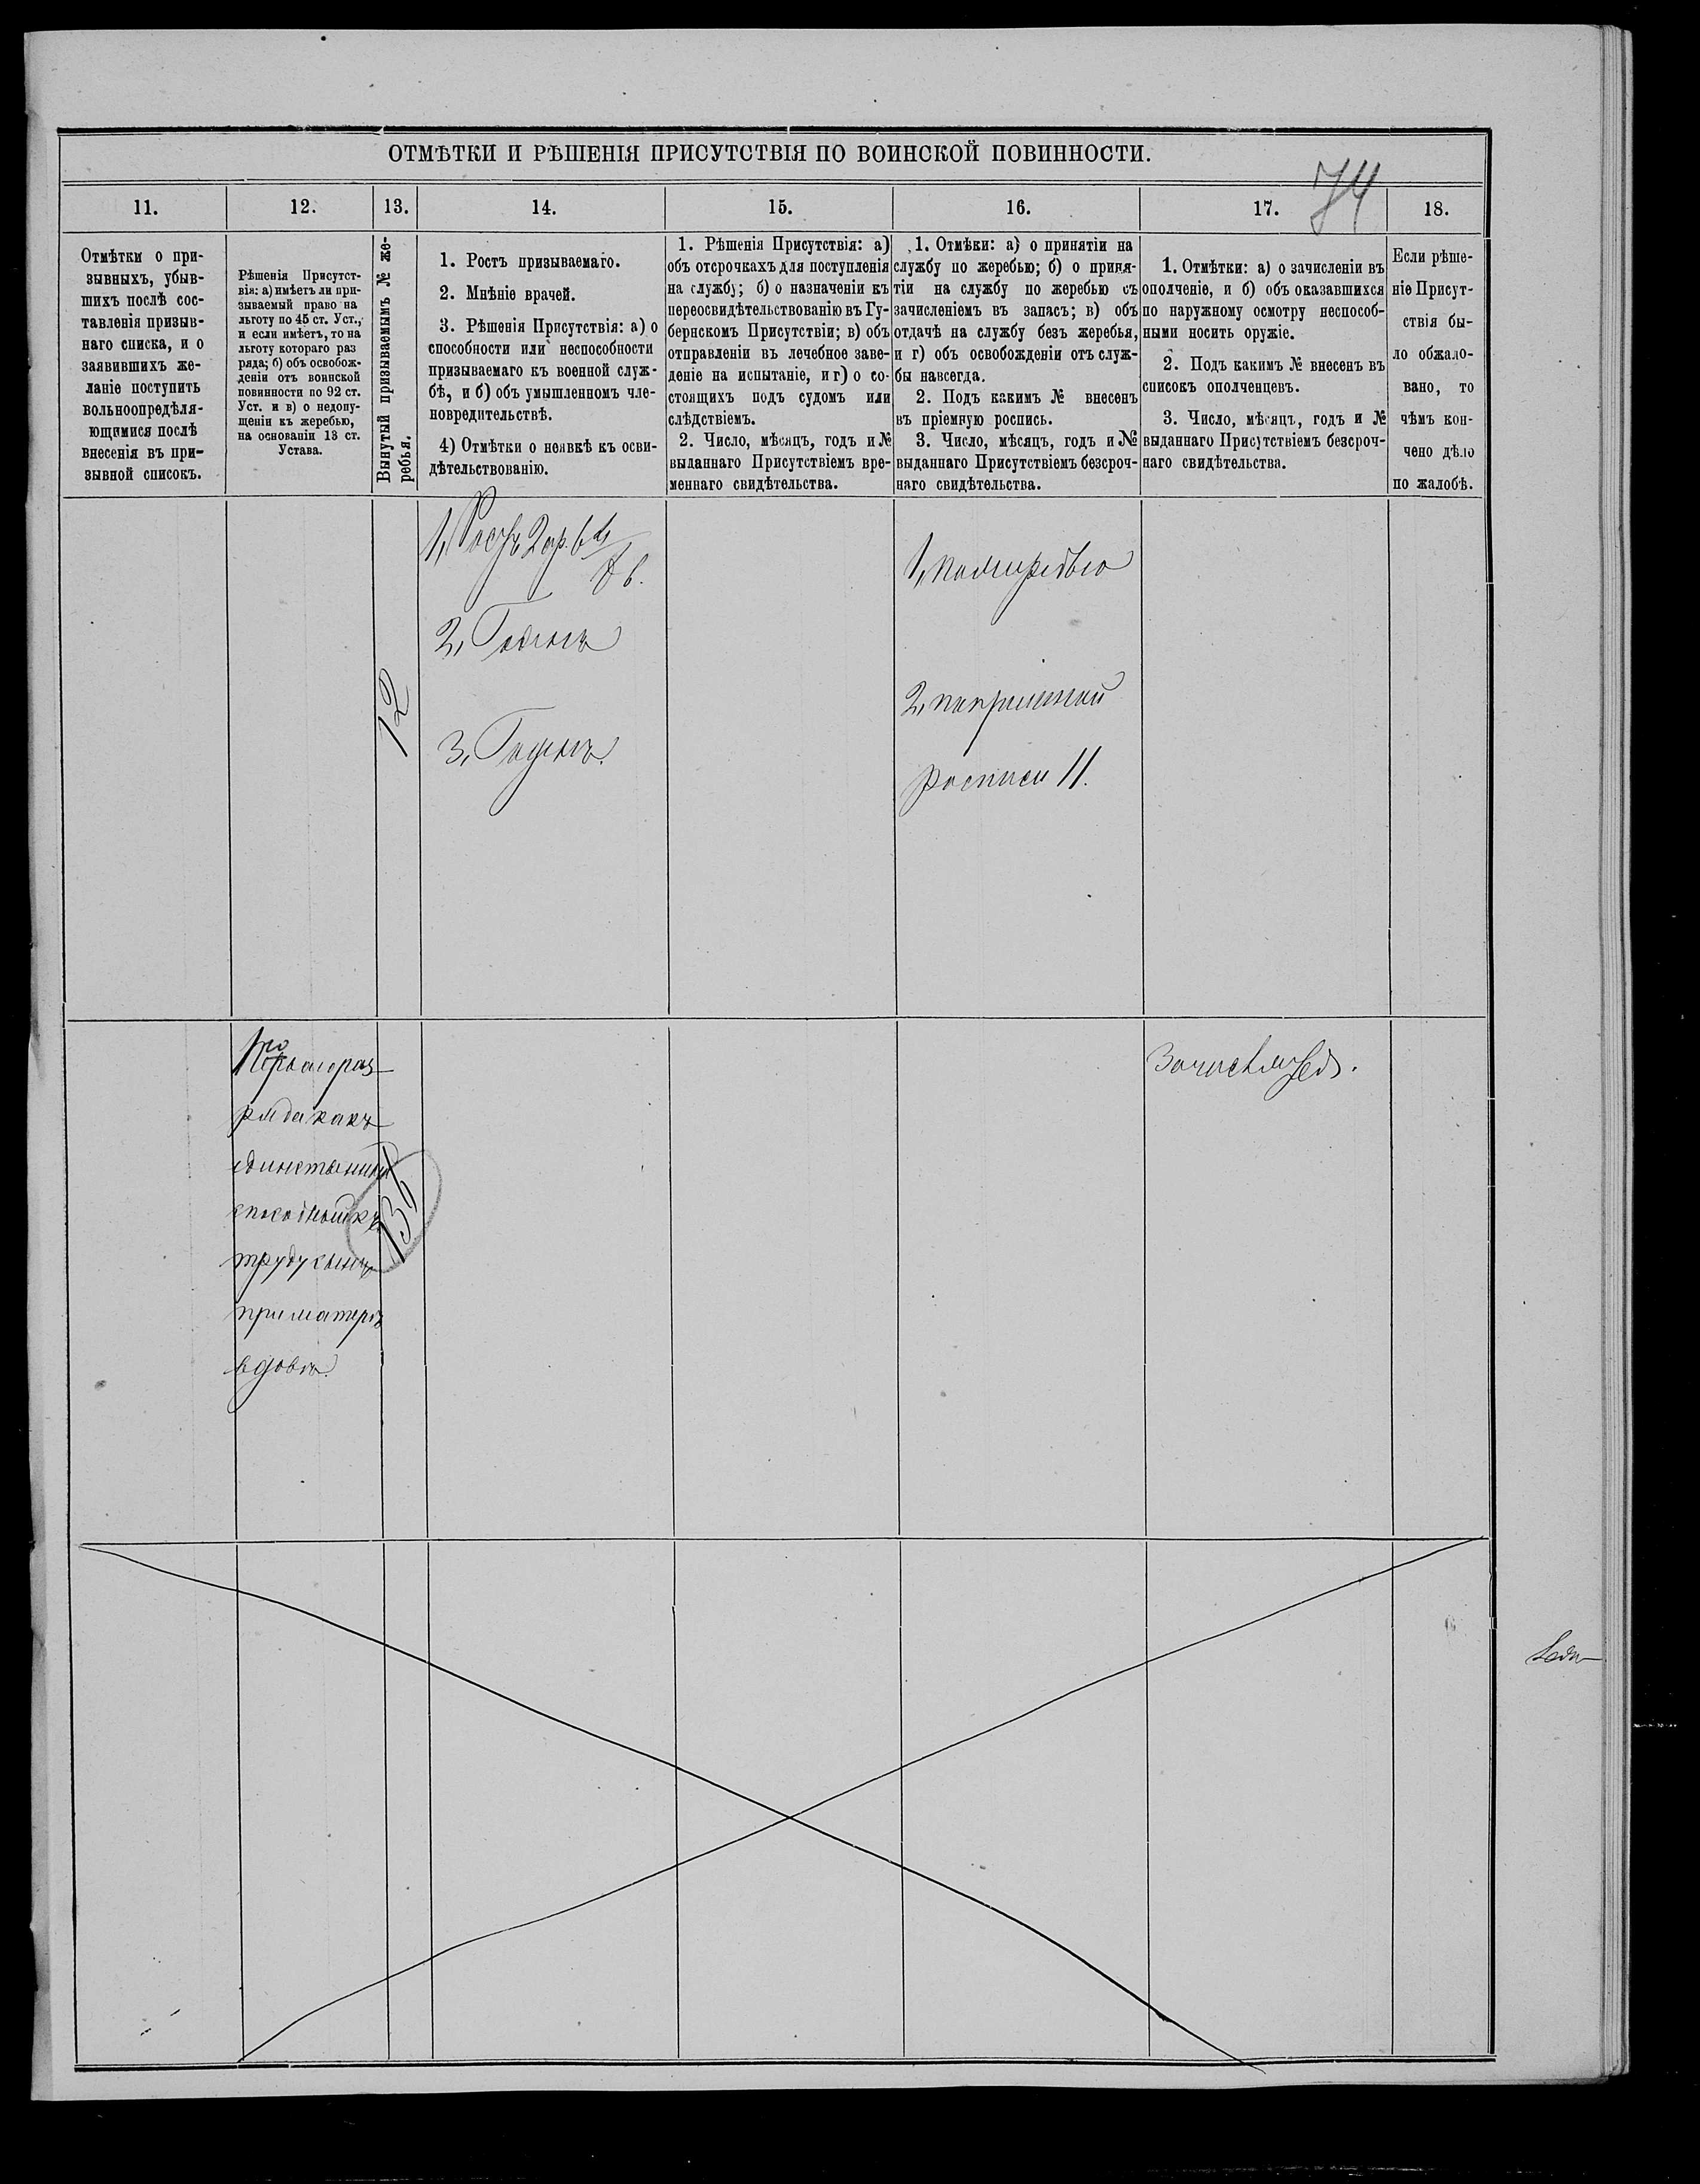 ОТМѢТКИ И РѢШЕНІЯ ПРИСУТСТВІЯ ПО ВОИНСКОЙ ПОВИННОСТИ.
74
11.
12.
13.
14.
15.
16.
17.
18.
Отмѣтки о при-
зывныхъ, убыв-
шихъ послѣ сос-
тавленія призыв-
наго списка, и о
заявившихъ же-
ланіе поступить
вольноопредѣля-
ющимися послѣ
внесенія въ при-
зывной списокъ.
Рѣшенія Присутст-
вія: а) имѣетъ ли при-
зываемый право на
льготу по 45 ст. Уст.,
и если имѣетъ, то на
льготу котораго раз
ряда; б) объ освобож-
деніи отъ воинской
повинности по 92 ст.
Уст. и в) о недопу-
щеніи къ жеребью,
на основаніи 13 ст.
Устава.
Вынутый призываемымъ № же-
ребья.
1. Ростъ призываемаго.
2. Мнѣніе врачей.
3. Рѣшенія Присутствія: а) о
способности или неспособности
призываемаго къ военной служ-
бѣ, и б) объ умышленномъ чле-
новредительствѣ.
4) Отмѣтки о неявкѣ къ осви-
дѣтельствованію.
1. Рѣшенія Присутствія: а)
объ отсрочкахъ для поступленія
на службу; б) о назначеніи къ
переосвидѣтельствованію въ Гу-
бернскомъ Присутствіи; в) объ
отправленіи въ лечебное заве-
деніе на испытаніе, и г) о со-
стоящихъ подъ судомъ или
слѣдствіемъ.
2. Число, мѣсяцъ, годъ и №
выданнаго Присутствіемъ вре-
меннаго свидѣтельства.
1. Отмѣки: а) о принятіи на
службу по жеребью; б) о приня-
тіи на службу по жеребью съ
зачисленіемъ въ запасъ; в) объ
отдачѣ на службу безъ жеребья,
и г) объ освобожденіи отъ служ-
бы навсегда.
2. Подъ какимъ № внесенъ
въ пріемную роспись.
3. Число, мѣсяцъ, годъ и №
выданнаго Присутствіемъ безсроч-
наго свидѣтельства.
1. Отмѣтки: а) о зачисленіи въ
ополченіе, и б) объ оказавшихся
по наружному осмотру неспособ-
ными носить оружіе.
2. Подъ какимъ № внесенъ въ
списокъ ополченцевъ.
3. Число, мѣсяцъ, годъ и №
выданнаго Присутствіемъ безсроч-
наго свидѣтельства.
Если рѣше-
ніе Присут-
ствія бы-
ло обжало-
вано, то
чѣмъ кон-
чено дѣло
по жалобѣ.
12
1, Ростъ 2 ар.
2, Годенъ
3, Годенъ.
1, по жеребью
2, по приемной
росписи 11.
перваго раз
ряда какъ
единственный
способный къ
труду сынъ
при матери
вдовѣ.